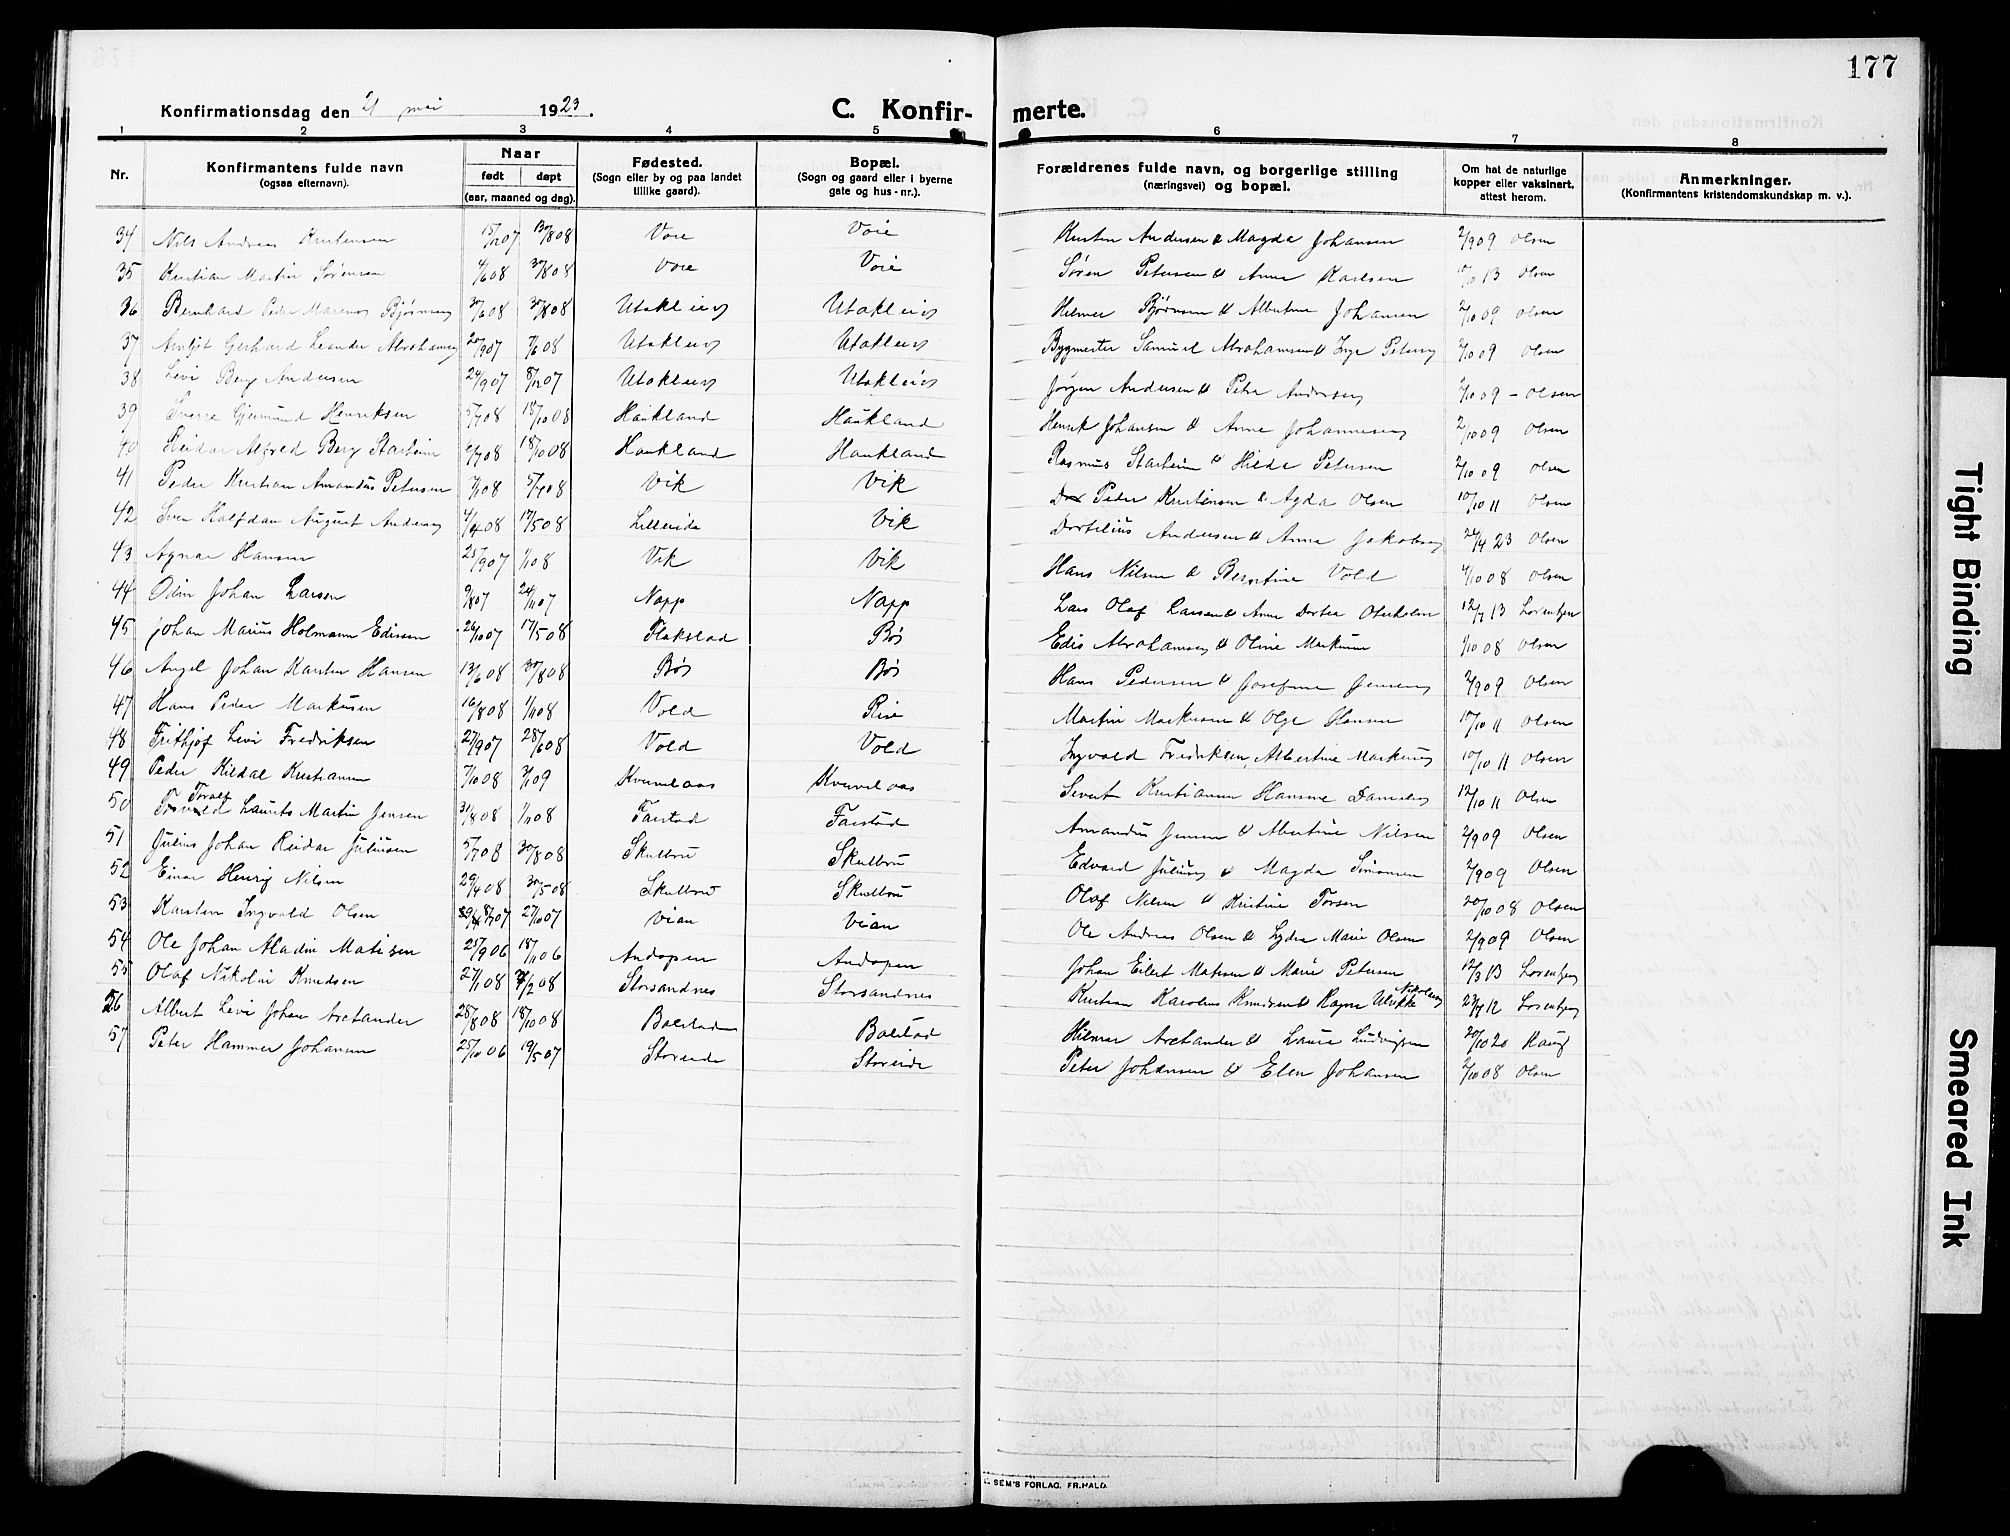 177
Konfirmationsdag den 21 mai 1923.
C. Konfirmerte.
1 2 3 4 5 6 7 8
Nr.
Konfirmantens fulde navn
(ogsaa efternavn).
Naar
født døpt
(aar, maaned og dag).
Fødested.
(Sogn eller by og paa landet
tillike gaard).
Bopæl.
(Sogn og gaard eller i byerne
gate og hus-nr.).
Forældrenes fulde navn, og borgerlige stilling
(næringsvei) og bopæl.
Om hat de naturlige
kopper eller vaksinert,
attest herom.
Anmerkninger.
(Konfirmantens kristendomskundskap m. v.).
34 Nils Andreas Kristensen 15/12 07 30/8 08 Voie Voie Kristen Andersen & Magda Johansen 2/9 09 Olsen
35 Kristian Martin Sørensen 4/6 08 30/8 08 Voie Voie Søren Petersen & Anna Karlsen 10/10 13 Olsen
36 Bernhard Peder Marenus Bjørnsen 30/6 08 30/8 08 Utakleiv Utakleiv Hilmar Bjørnsen & Albertine Johansen 2/10 09 Olsen
37 Arnljot Gerhard Leander Abrahamsen 20/9 07 7/6 08 Utakleiv Utakleiv Bygmester Samuel Abrahamsen & Inga Petersen 2/10 09 Olsen
38 Levi Berg Andersen 24/9 07 8/12 07 Utakleiv Utakleiv Jørgen Andersen & Petra Andersen 2/10 09 - Olsen
39 Sverre Gjermund Henriksen 5/7 08 18/10 08 Haukland Haukland Henrik Johansen & Anna Johannesen 2/10 09 Olsen
40 Reidar Alfred Berg Starheim 6/7 08 18/10 08 Haukland Haukland Rasmus Starheim & Hilda Petersen 2/10 09 Olsen
41 Peder Kristian Amandus Petersen 7/1 08 5/7 08 Vik Vik Peder Kristensen & Agda Olsen 10/10 11 Olsen
42 Sven Halfdan August Andersen 4/4 08 17/5 08 Lilleeide Vik Dortelius Andersen & Anna Jakobsen 24/4 23 Olsen
43 Agnar Hansen 25/9 07 1/1 08 Vik Vik Hans Nilsen & Berntine Vold 4/10 08 Olsen
44 Odin Johan Larsen 9/8 07 24/11 07 Napp Napp Lars Olaf Larsen & Anna Dortea Oterholm 12/7 13 Lorentzen
45 Johan Marius Holmann Edissen 26/10 07 17/5 08 Flakstad Bø Edis Abrahamsen & Oline Markusen 1/10 08 Olsen
46 Angel Johan Karsten Hansen 13/6 08 30/8 08 Bø Bø Hans Pedersen & Josefine Jensen 2/9 09 Olsen
47 Hans Peder Markusen 16/8 08 1/11 08 Vold Rise Martin Markusen & Olga Hansen 10/10 11 Olsen
48 Frithjof Levi Fredriksen 27/9 07 28/6 08 Vold Vold Ingvald Fredriksen, Albertine Markusen 10/10 11 Olsen
49 Peder Kildal Kristiansen 7/10 08 3/1 09 Kvervelaas Kvervelaas Sivert Kristiansen Hansine Danielsen 12/10 11 Olsen
50 Toralf Laurits Martin Jensen 31/8 08 1/11 08 Farstad Farstad Amandus Jensen & Albertine Nilsen 2/9 09 Olsen
51 Julius Johan Reidar Juliusen 5/7 08 30/8 08 Skulbru Skulbru Edvard Juliusen & Magda Simonsen 2/9 09 Olsen
52 Einar Henrig Nilsen 29/4 08 30/5 08 Skulbru Skulbru Olaf Nilsen & Kristine Torsen 20/10 08 Olsen
53 Karsten Ingvald Olsen 8/7 07 27/10 07 Vian Vian Ole Andreas Olsen & Lydia Marie Olsen 2/9 09 Olsen
54 Ole Johan Aladin Matisen 25/9 06 18/11 06 Andopen Andopen Johan Eilert Matisen & Marie Petersen 12/3 13 Lorentzen
55 Olaf Nikolai Knudsen 27/1 08 /2 08 Storsandnes Storsandnes Kristian Karolius Knudsen & Ragna Ulrikke Nikolaisen 23/7 12 Lorentzen
56 Albert Levi Johan Arctander 28/8 08 18/10 08 Bolstad Bolstad Hilmar Arctander & Laura Ludvigsen 20/10 20 Haug
57 Peter Hammer Johansen 25/10 06 19/5 07 Storeide Storeide Peter Johansen & Elen Johansen 2/10 08 Olsen
SEM'S FORLAG, FR.HALD.
Tight Binding
Smeared Ink